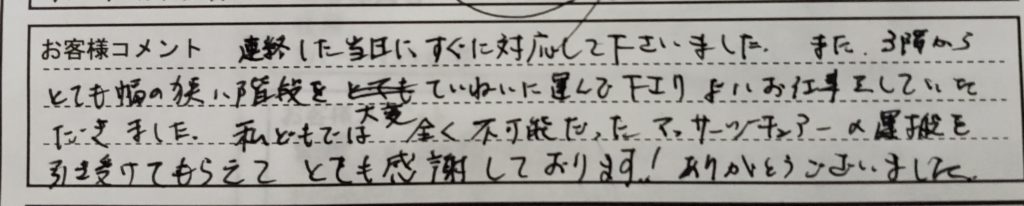 お客様コメント 連絡した当日に、すぐに対応して下さいました。また、3階から
とても幅の狭い階段をていねいに運んで下さり よいお仕事をしていた
だきました。私どもでは大変 全く不可能だったマッサージチェアーの運搬を
引き受けてもらえて とても感謝しております！ありがとうございました。